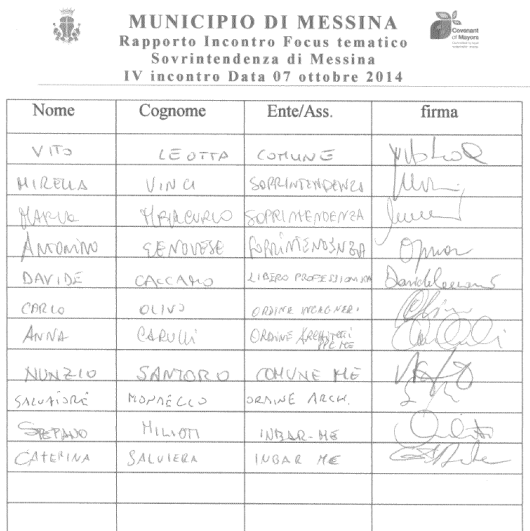 MUNICIPIO DI MESSINA
Rapporto Incontro Focus tematico
Sovrintendenza di Messina
IV incontro Data 07 ottobre 2014
Covenant
of Mayors
Nome Cognome Ente/Ass. firma
VITO LEOTTA COMUNE
MIRELLA VINCI SOPRINTENDENZA
MARIA MERCURIO SOPRINTENDENZA
ANTONINO GENOVESE SOPRINTENDENZA
DAVIDE CACCAMO LIBERO PROFESSIONISTA
CARLO OLIVO ORDINE INGEGNERI
ANNA CARULLI ORDINE ARCHITETTI
PPC ME
NUNZIO SANTORO COMUNE ME
SALVATORE ORDINE ARCH.
STEFANO MILIOTI INBAR-ME
CATERINA SALVIERA INBAR ME